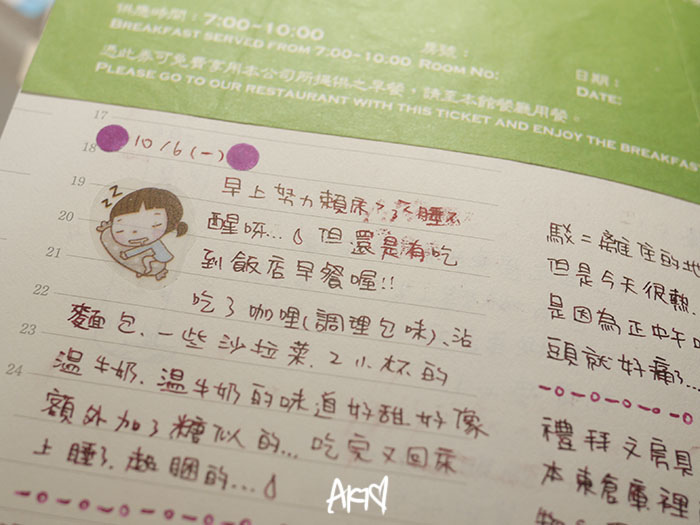 供應時間：7:00-10:00
BREAKFAST SERVED FROM 7:00-10:00
房號：
ROOM NO:
日期：
DATE:
憑此券可免費享用本公司所提供之早餐，請至本館餐廳用餐。
PLEASE GO TO OUR RESTAURANT WITH THIS TICKET AND ENJOY THE BREAKFAS
17
18
19
20
21
22
23
24
10/6(一)
zzz
早上努力賴床
醒呀...但還是有吃
到飯店早餐喔!!
吃了咖哩(調理包味)、沾
麵包、一些沙拉菜、2小杯的
溫牛奶、溫牛奶的味道好甜好像
額外加了糖似的...吃完又回床
上睡了、超睏的...
駁二離住的地
但是今天很熱
是因為正中午
頭就好痛了...
禮拜文房具
本東倉庫裡
AKO